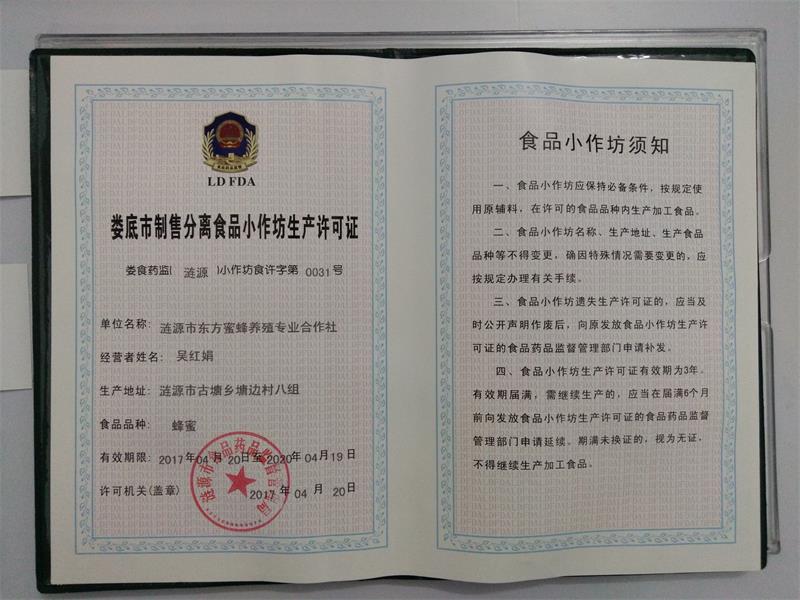 LD FDA
娄底市制售分离食品小作坊生产许可证
娄食药监( 涟源 )小作坊食许字第 0031 号
单位名称: 涟源市东方蜜蜂养殖专业合作社
经营者姓名: 吴红娟
生产地址: 涟源市古塘乡塘边村八组
食品品种: 蜂蜜
有效期限: 2017年04月20日至2020年04月19日
许可机关(盖章) 2017年04月20日
涟源市食品药品监督管理局
食品小作坊须知
一、食品小作坊应保持必备条件，按规定使
用原辅料，在许可的食品品种内生产加工食品。
二、食品小作坊名称、生产地址、生产食品
品种等不得变更，确因特殊情况需要变更的，应
按规定办理有关手续。
三、食品小作坊遗失生产许可证的，应当及
时公开声明作废后，向原发放食品小作坊生产许
可证的食品药品监督管理部门申请补发。
四、食品小作坊生产许可证有效期为3年。
有效期届满，需继续生产的，应当在届满6个月
前向发放食品小作坊生产许可证的食品药品监督
管理部门申请延续。期满未换证的，视为无证，
不得继续生产加工食品。